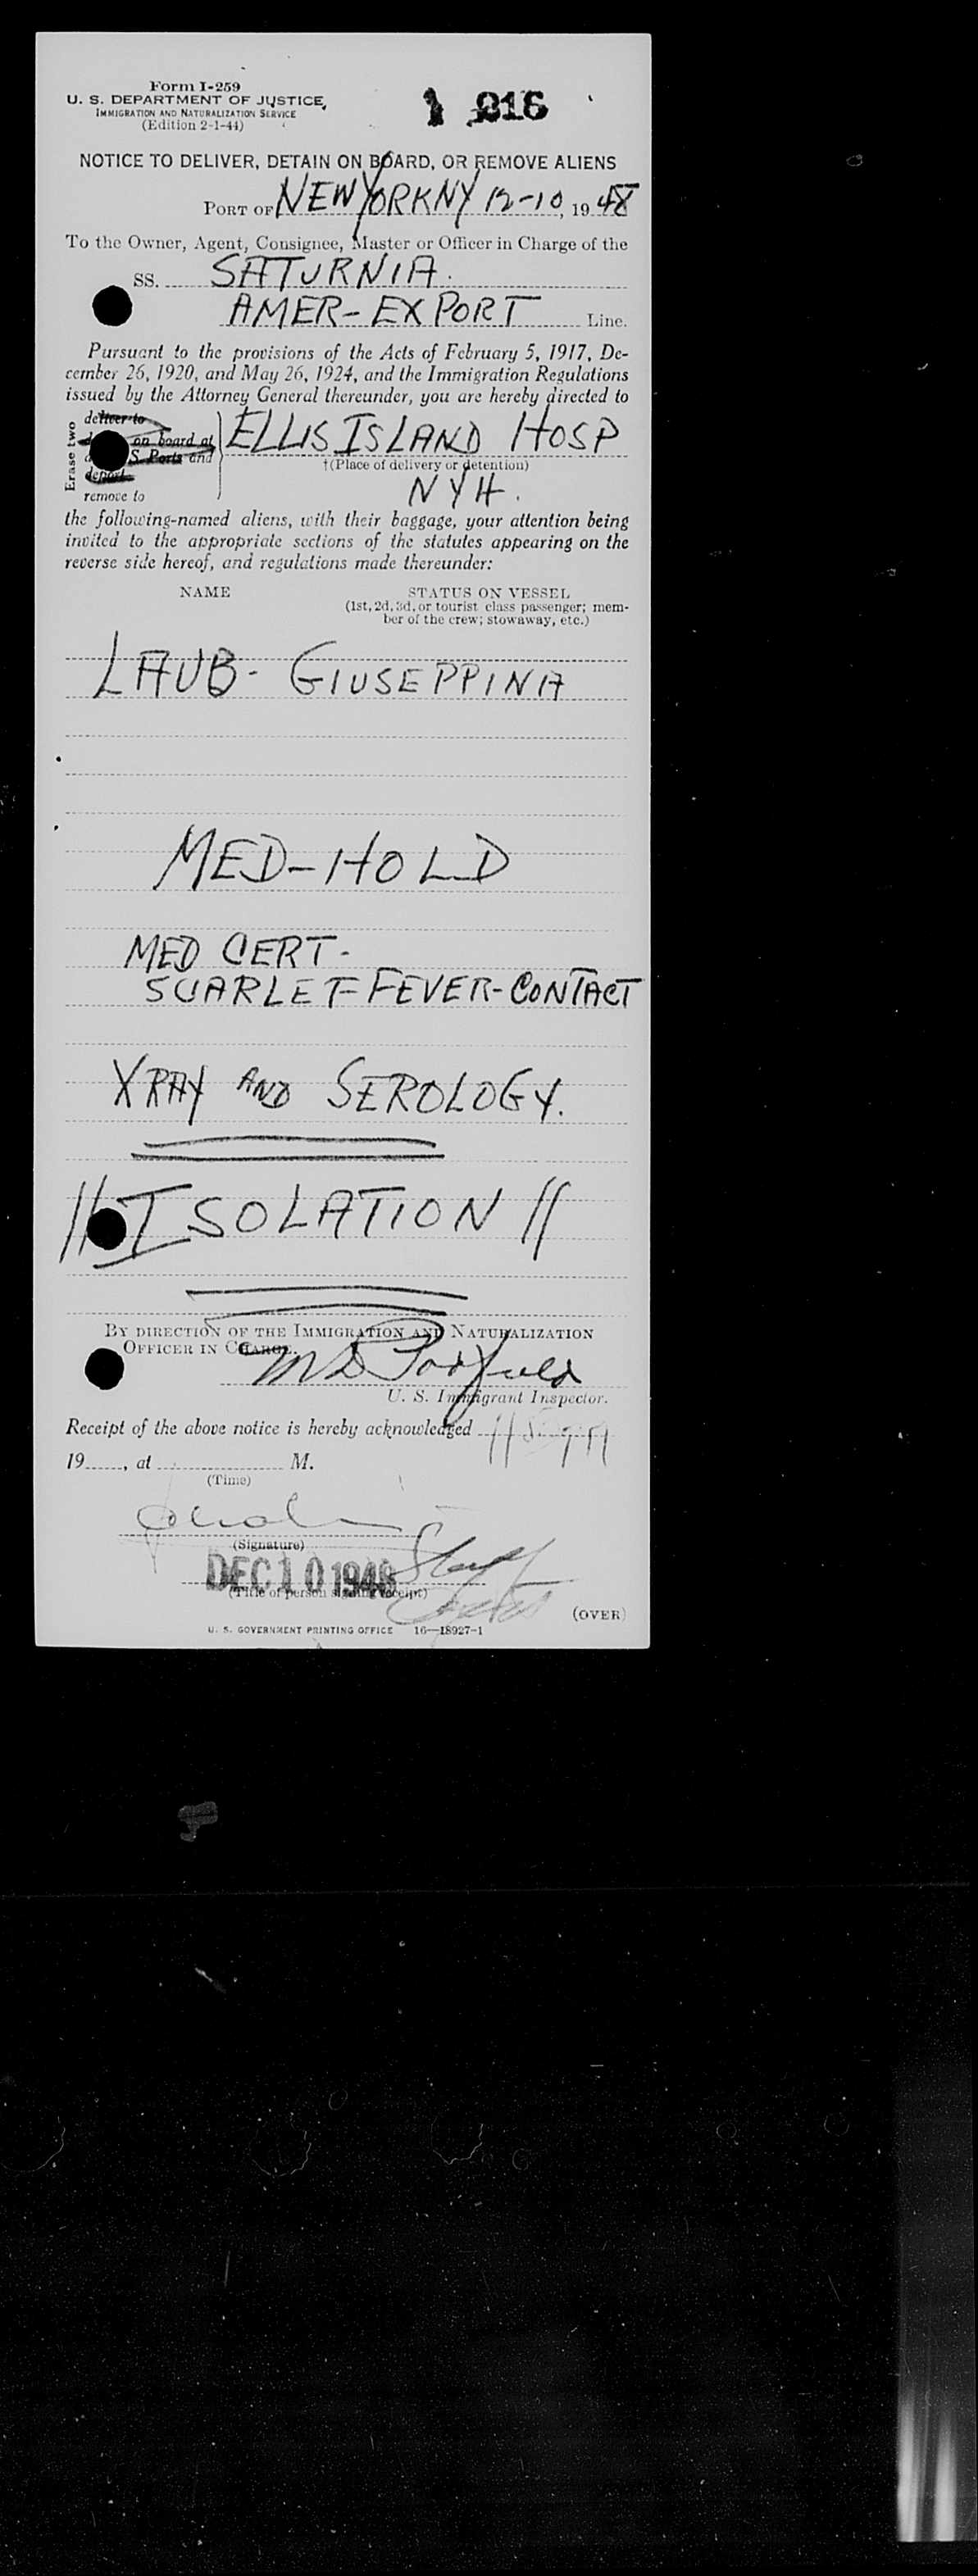 Form I-259
U. S. DEPARTMENT OF JUSTICE
IMMIGRATION AND NATURALIZATION SERVICE
(Edition 2-1-44)
NOTICE TO DELIVER, DETAIN ON BOARD, OR REMOVE ALIENS
PORT OF NEW YORK NY 12-10, 1948
To the Owner, Agent, Consignee, Master or Officer in Charge of the
SS. SATURNIA.
AMER-EXPORT Line.
Pursuant to the provisions of the Acts of February 5, 1917, De-
cember 26, 1920, and May 26, 1924, and the Immigration Regulations
issued by the Attorney General thereunder, you are hereby directed to
Erase two
deliver to
on board at
S. Ports and
deport
remove to
ELLIS ISLAND HOSP
†(Place of delivery or detention)
NYH.
the following-named aliens, with their baggage, your attention being
invited to the appropriate sections of the statutes appearing on the
reverse side hereof, and regulations made thereunder:
NAME STATUS ON VESSEL
(1st, 2d, 3d, or tourist class passenger; mem-
ber of the crew; stowaway, etc.)
LAUB- GIUSEPPINA
MED-HOLD
MED CERT-
SCARLET FEVER-CONTACT
XRAY AND SEROLOGY.
// ISOLATION //
BY DIRECTION OF THE IMMIGRATION AND NATURALIZATION
OFFICER IN CHARGE.
U. S. Immigrant Inspector.
Receipt of the above notice is hereby acknowledged
19......, at .................. M.
(Time)
(Signature)
DEC 10 1948
(Title of person signing receipt)
(OVER)
U. S. GOVERNMENT PRINTING OFFICE 16—18927-1